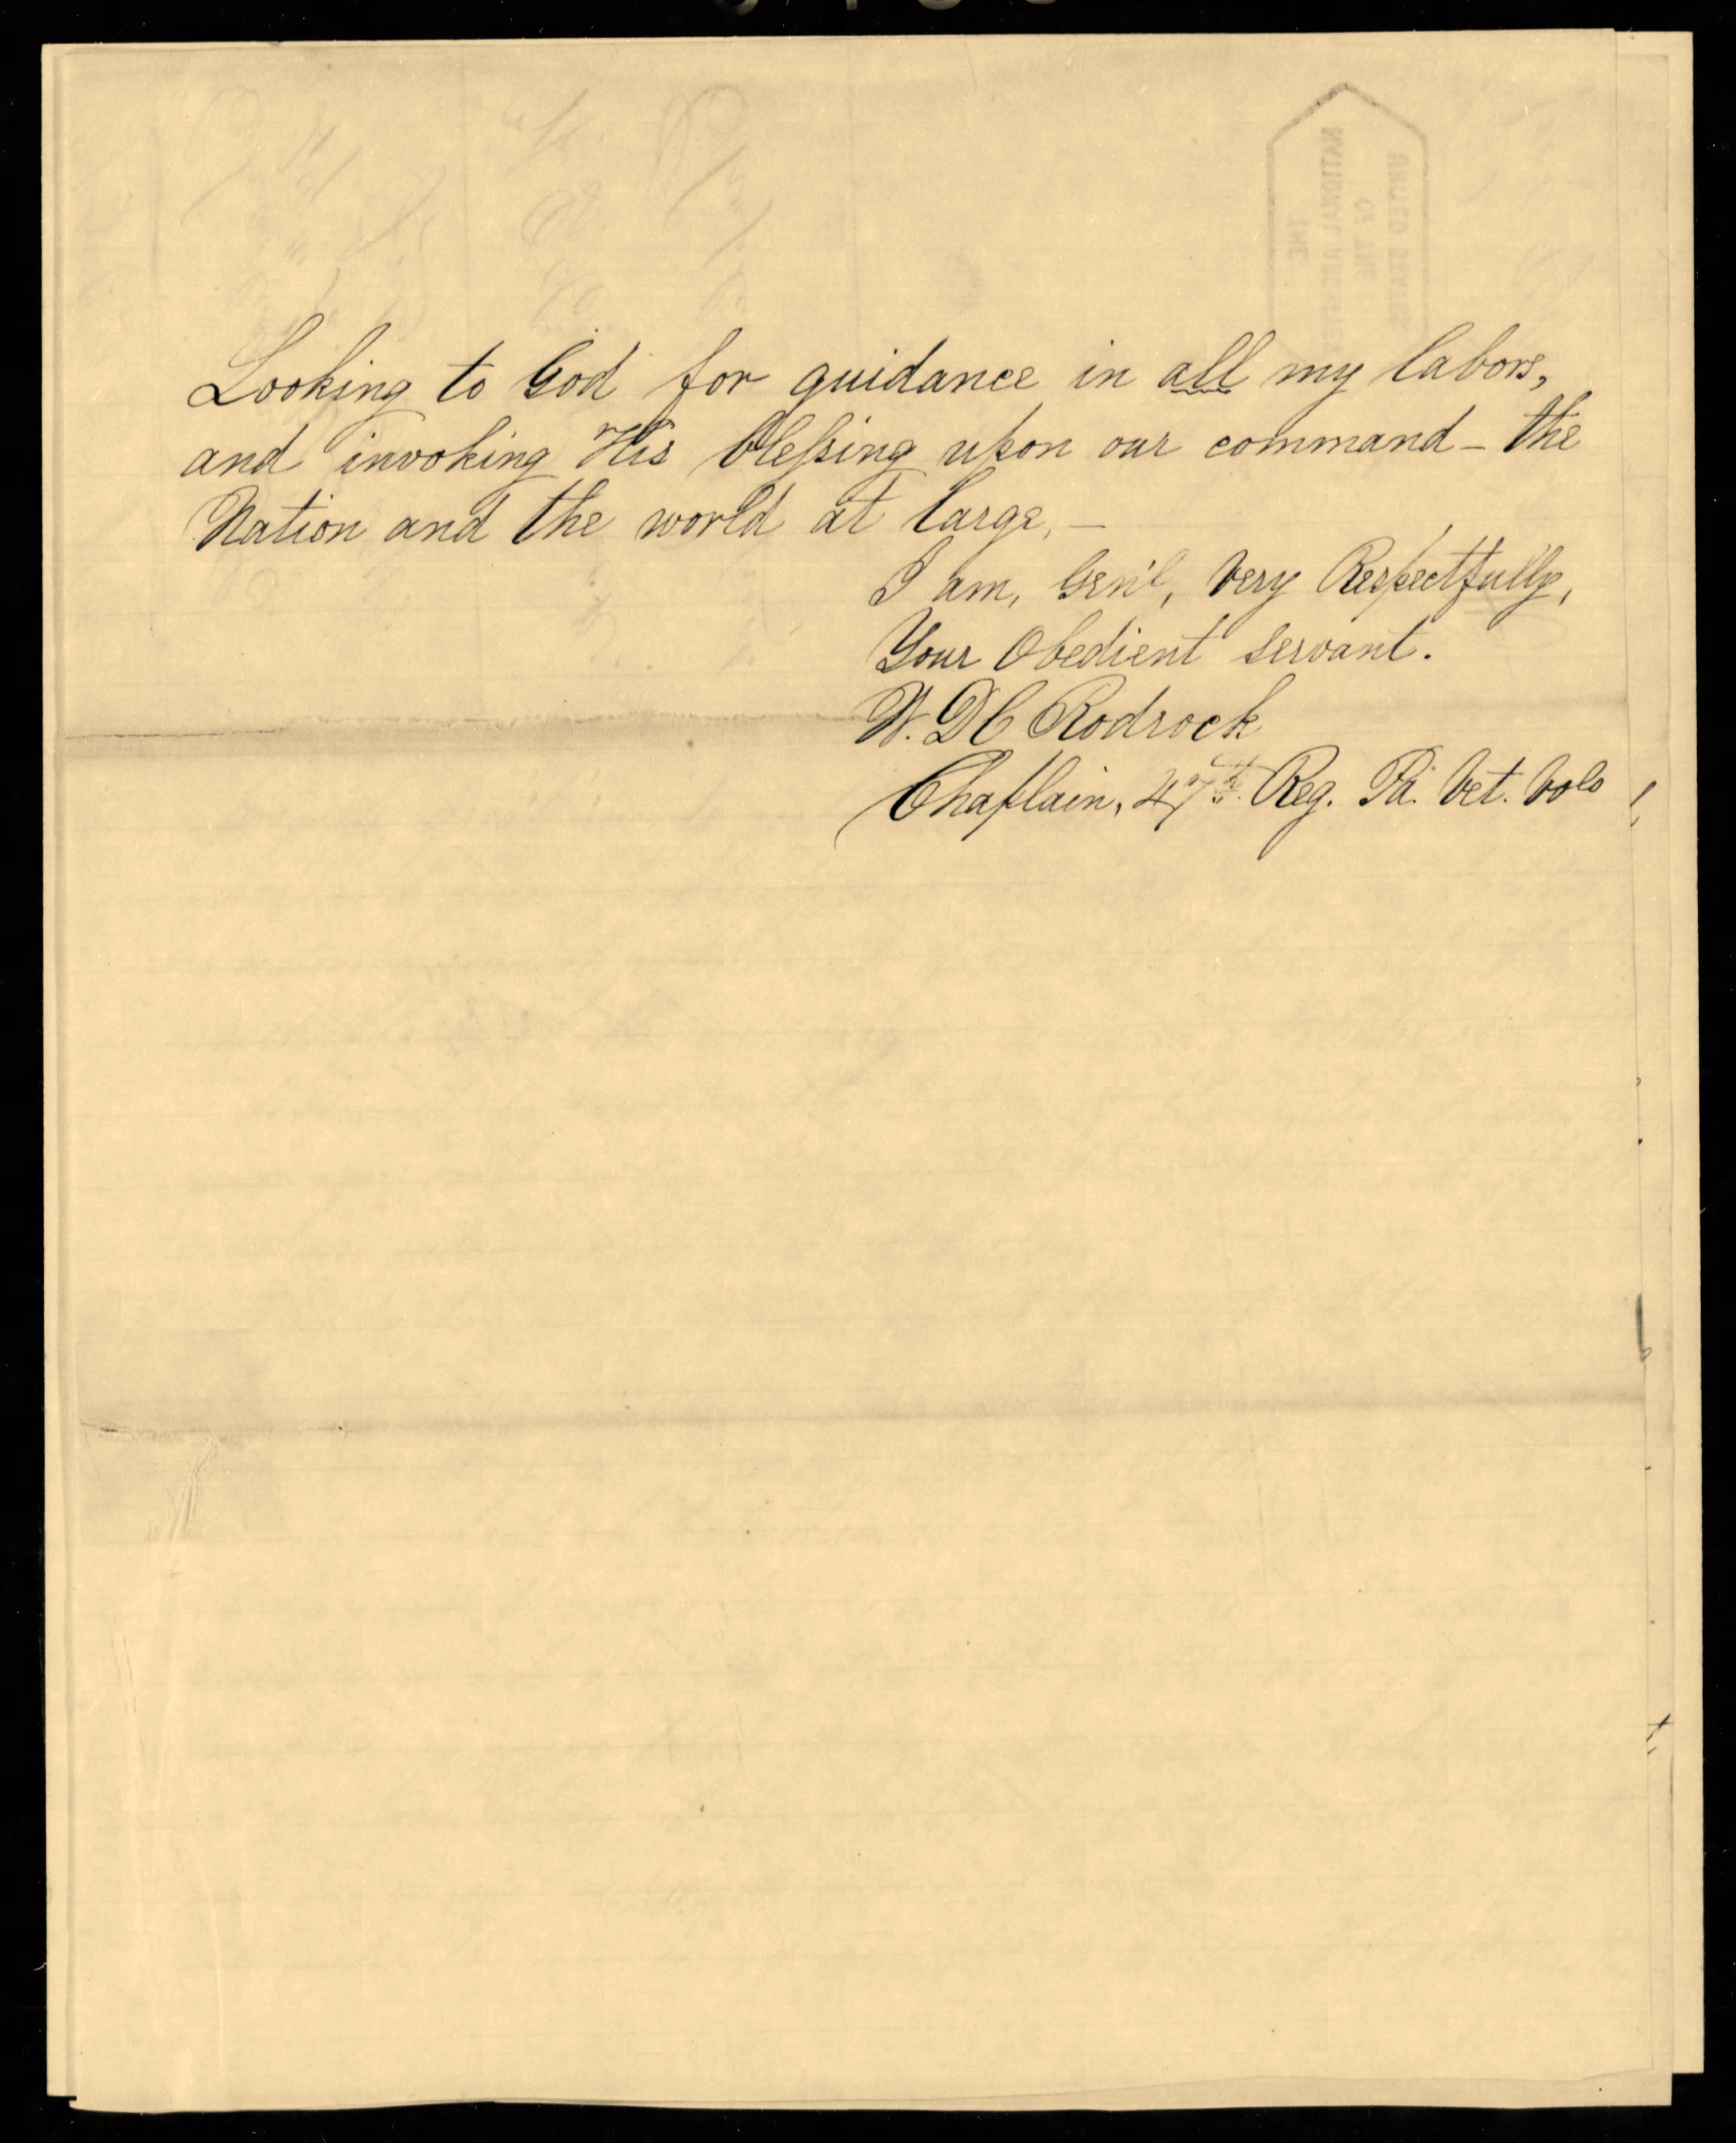 Looking to God for guidance in all my labors,
and invoking His blessing upon our command - the
Nation and the world at large, -
I am, Gen'l, Very Respectfully,
Your Obedient servant.
W. D C Rodrock
Chaplain, 47th Reg. Pa. Vet. Vols